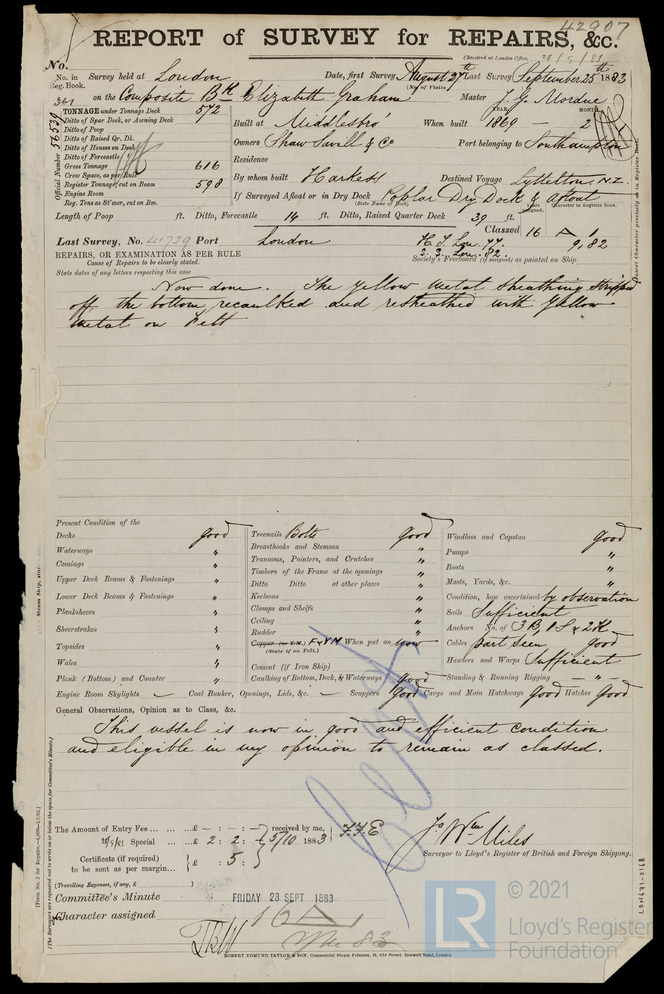 42907
REPORT of SURVEY for REPAIRS, &c.
(Received at London Office, 28/9/83
No.
No. in Reg. Book. Survey held at London Date, first Survey August 27th Last Survey September 25th 1883
(No. of Visits)
361 on the Composite Bk Elizabeth Graham Master J. G. Mordue
TONNAGE under Tonnage Deck 572
Ditto of Spar Deck, or Awning Deck
Ditto of Poop
Ditto of Raised Qr. Dk.
Ditto of Houses on Deck
Ditto of Forecastle
Gross Tonnage 616
Crew Space, as per Rule
Register Tonnage, cut on Beam 598
Engine Room
Reg. Tons as St'mer, cut on Bm.
Official Number 56539
YEAR. MONTH.
Built at Middlesbro' When built 1869 — 2
Owners Shaw Savill & Co Port belonging to Southampton
Residence
By whom built Harkess Destined Voyage Lyttelton, N.Z.
If Surveyed Afloat or in Dry Dock Poplar Dry Dock & afloat
(State Name of Dock)
Length of Poop ft. Ditto, Forecastle 14 ft. Ditto, Raised Quarter Deck 39 ft.
Classed 16 A 1
9,82
Last Survey, No. 41729 Port London
H. T. Lon. 77.
S. S. Lon. 82.
REPAIRS, OR EXAMINATION AS PER RULE
Society's Freeboard (if assigned) as painted on Ship
Cause of Repairs to be clearly stated.
State dates of any letters respecting this case
Now done. The Yellow Metal Sheathing stripped
off the bottom, recaulked and resheathed with Yellow
Metal on Felt
Present Condition of the
Decks good
Waterways "
Comings "
Upper Deck Beams & Fastenings "
Lower Deck Beams & Fastenings "
Planksheers "
Sheerstrakes "
Topsides "
Wales "
Plank (Bottom) and Counter "
Treenails Bolts good
Breasthooks and Stemson "
Transoms, Pointers, and Crutches "
Timbers of the Frame at the openings "
Ditto Ditto at other places "
Keelsons "
Clamps and Shelfs "
Ceiling "
Rudder "
Copper (or Y.M.) F & YM When put on now
(State if on Felt.)
Cement (if Iron Ship)
Caulking of Bottom, Deck, & Waterways good
Windlass and Capstan good
Pumps "
Boats "
Masts, Yards, &c. "
Condition, how ascertained by observation
Sails Sufficient
Anchors No. of 3B, 1S & 2K
Cables part seen good
Hawsers and Warps Sufficient
Standing & Running Rigging — " —
Engine Room Skylights — Coal Bunker, Openings, Lids, &c. — Scuppers Good Cargo and Main Hatchways Good Hatches Good
General Observations, Opinion as to Class, &c.
This vessel is now in good and efficient condition
and eligible in my opinion to remain as classed.
The Amount of Entry Fee £ - : - : -
Special £ 2 : 2 : -
received by me, 5/10 1883
F.F.E
Certificate (if required) to be sent as per margin £ : 5 :
Jo Wm Miles
Surveyor to Lloyd's Register of British and Foreign Shipping.
(Travelling Expenses, if any, £
Committee's Minute FRIDAY 28 SEPT 1883
Character assigned 16 A 1
ROBERT EDMUND TAYLOR & SON, Commercial Steam Printers, 19, Old Street, Goswell Road, London.
LR
© 2021
Lloyd's Register
Foundation